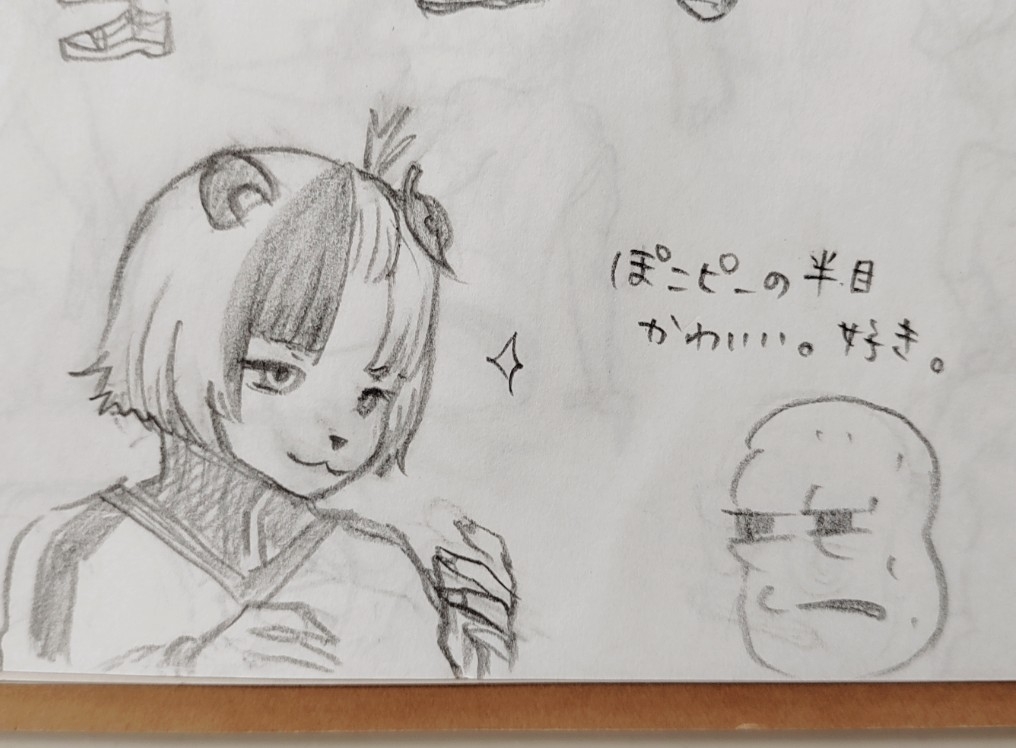 ぽこピーの半目
かわいい。好き。